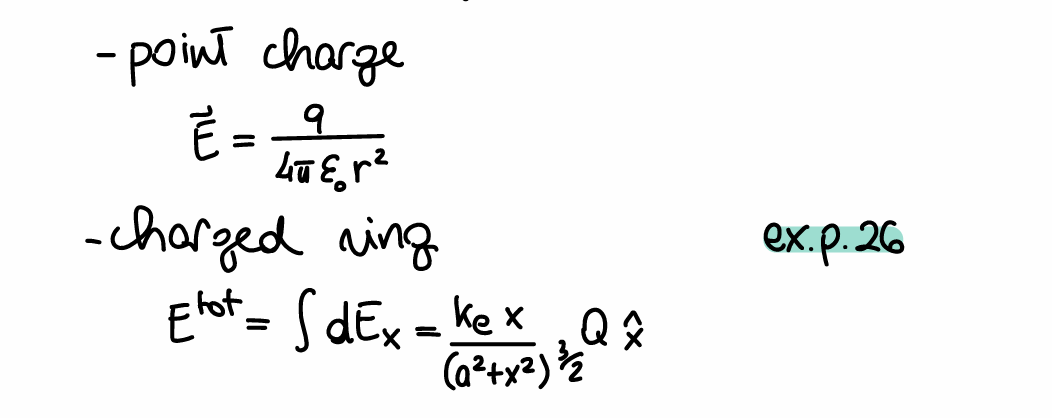 - point charge
E⃗ = q / (4π ε₀ r²)
- charged ring ex.p.26
E^tot = ∫ dEₓ = kₑ x / (a²+x²)^3/2 Q x̂